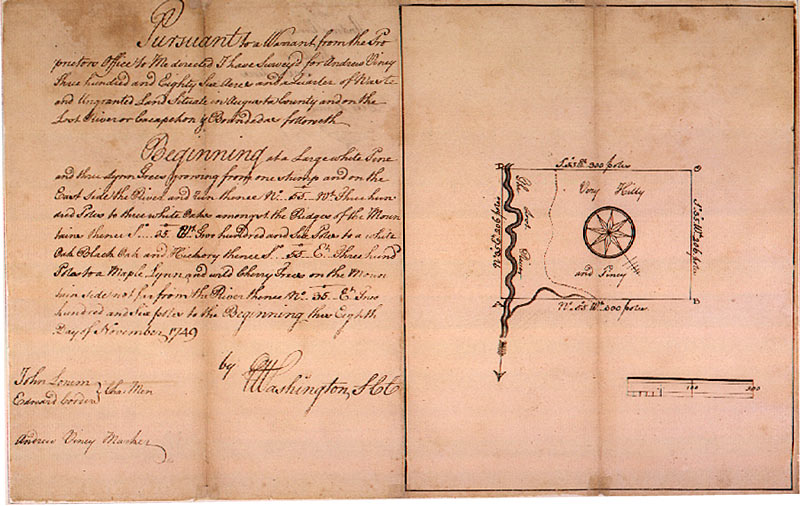 Pursuant to a Warrant from the Pro
prietors Office to Me directed I have Survey'd for Andrew Viney
Three hundred and Eighty Six Acres and a Quarter of Waste
and Ungranted Land Situate in Augusta County and on the
Lost River or Cacapehon & Bounded as followeth
Beginning at a Large white Pine
and three Lynn Trees growing from one stump and on the
East Side the River and Run thence No. 55 Wt. Three hun
dred Poles to three white Oaks amongst the Ridges of the Moun
tains thence So. 35 Wt. Two hundred and Six Poles to a white
Oak Black Oak and Hickory thence So. 55 Et. Three hund
Poles to a Maple Lynn and wild Cherry Trees on the Moun
tain side not far from the River thence No. 35 Et. Two
hundred and Six poles to the Beginning this Eighth
Day of November 1749
by
GWashington, SCC
John
Edward Corder
Cha. Men
Andrew Viney Marker
So. 55 300 poles
Very Hilly
and Piney
The Lost River
No. 35 Et. 206 poles
So. 35 Wt. 206 poles
No. 55 Wt. 300 poles
100
300